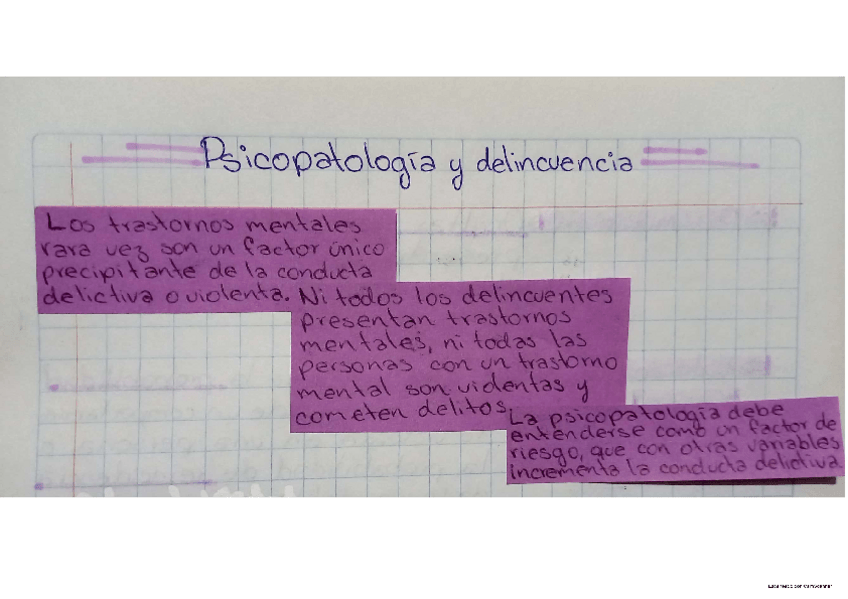 Psicopatología y delincuencia
Los trastornos mentales
rara vez son un factor único
precipitante de la conducta
delictiva o violenta.
Ni todos los delincuentes
presentan trastornos
mentales, ni todas las
personas con un trastorno
mental son violentas y
cometen delitos
La psicopatología debe
entenderse como un factor de
riesgo, que con otras variables
incrementa la conducta delictiva.